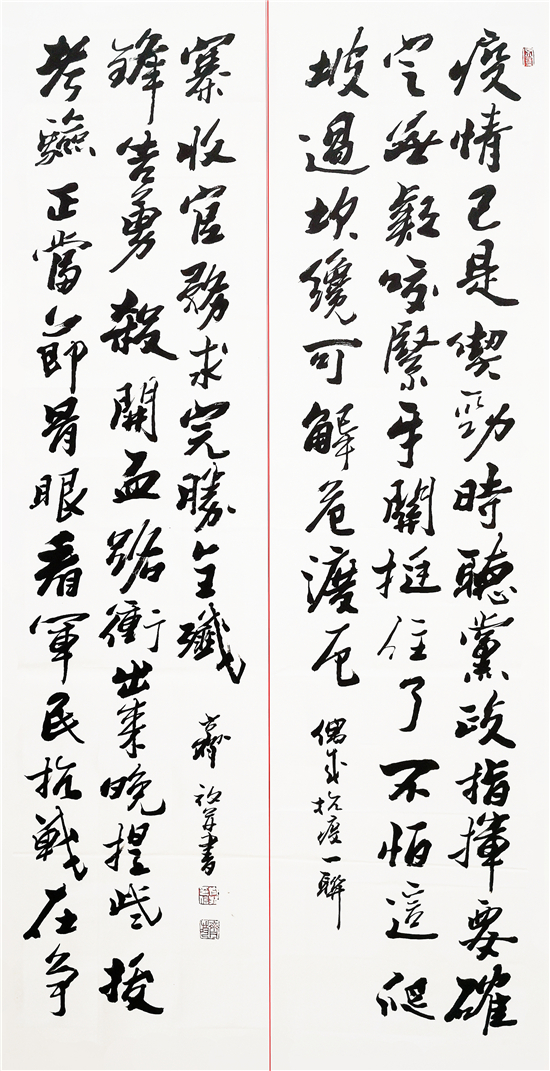 疫情已是喫勁時聽黨政指揮要確
定無疑咬緊牙關挺住了不怕這爬
坡過坎纔可解危渡厄
偶成抗疫一聯
考驗正當節骨眼看軍民抗戰在爭
鋒告勇殺開血路衝出來晚提些拔
寨收官務求完勝全殲
書